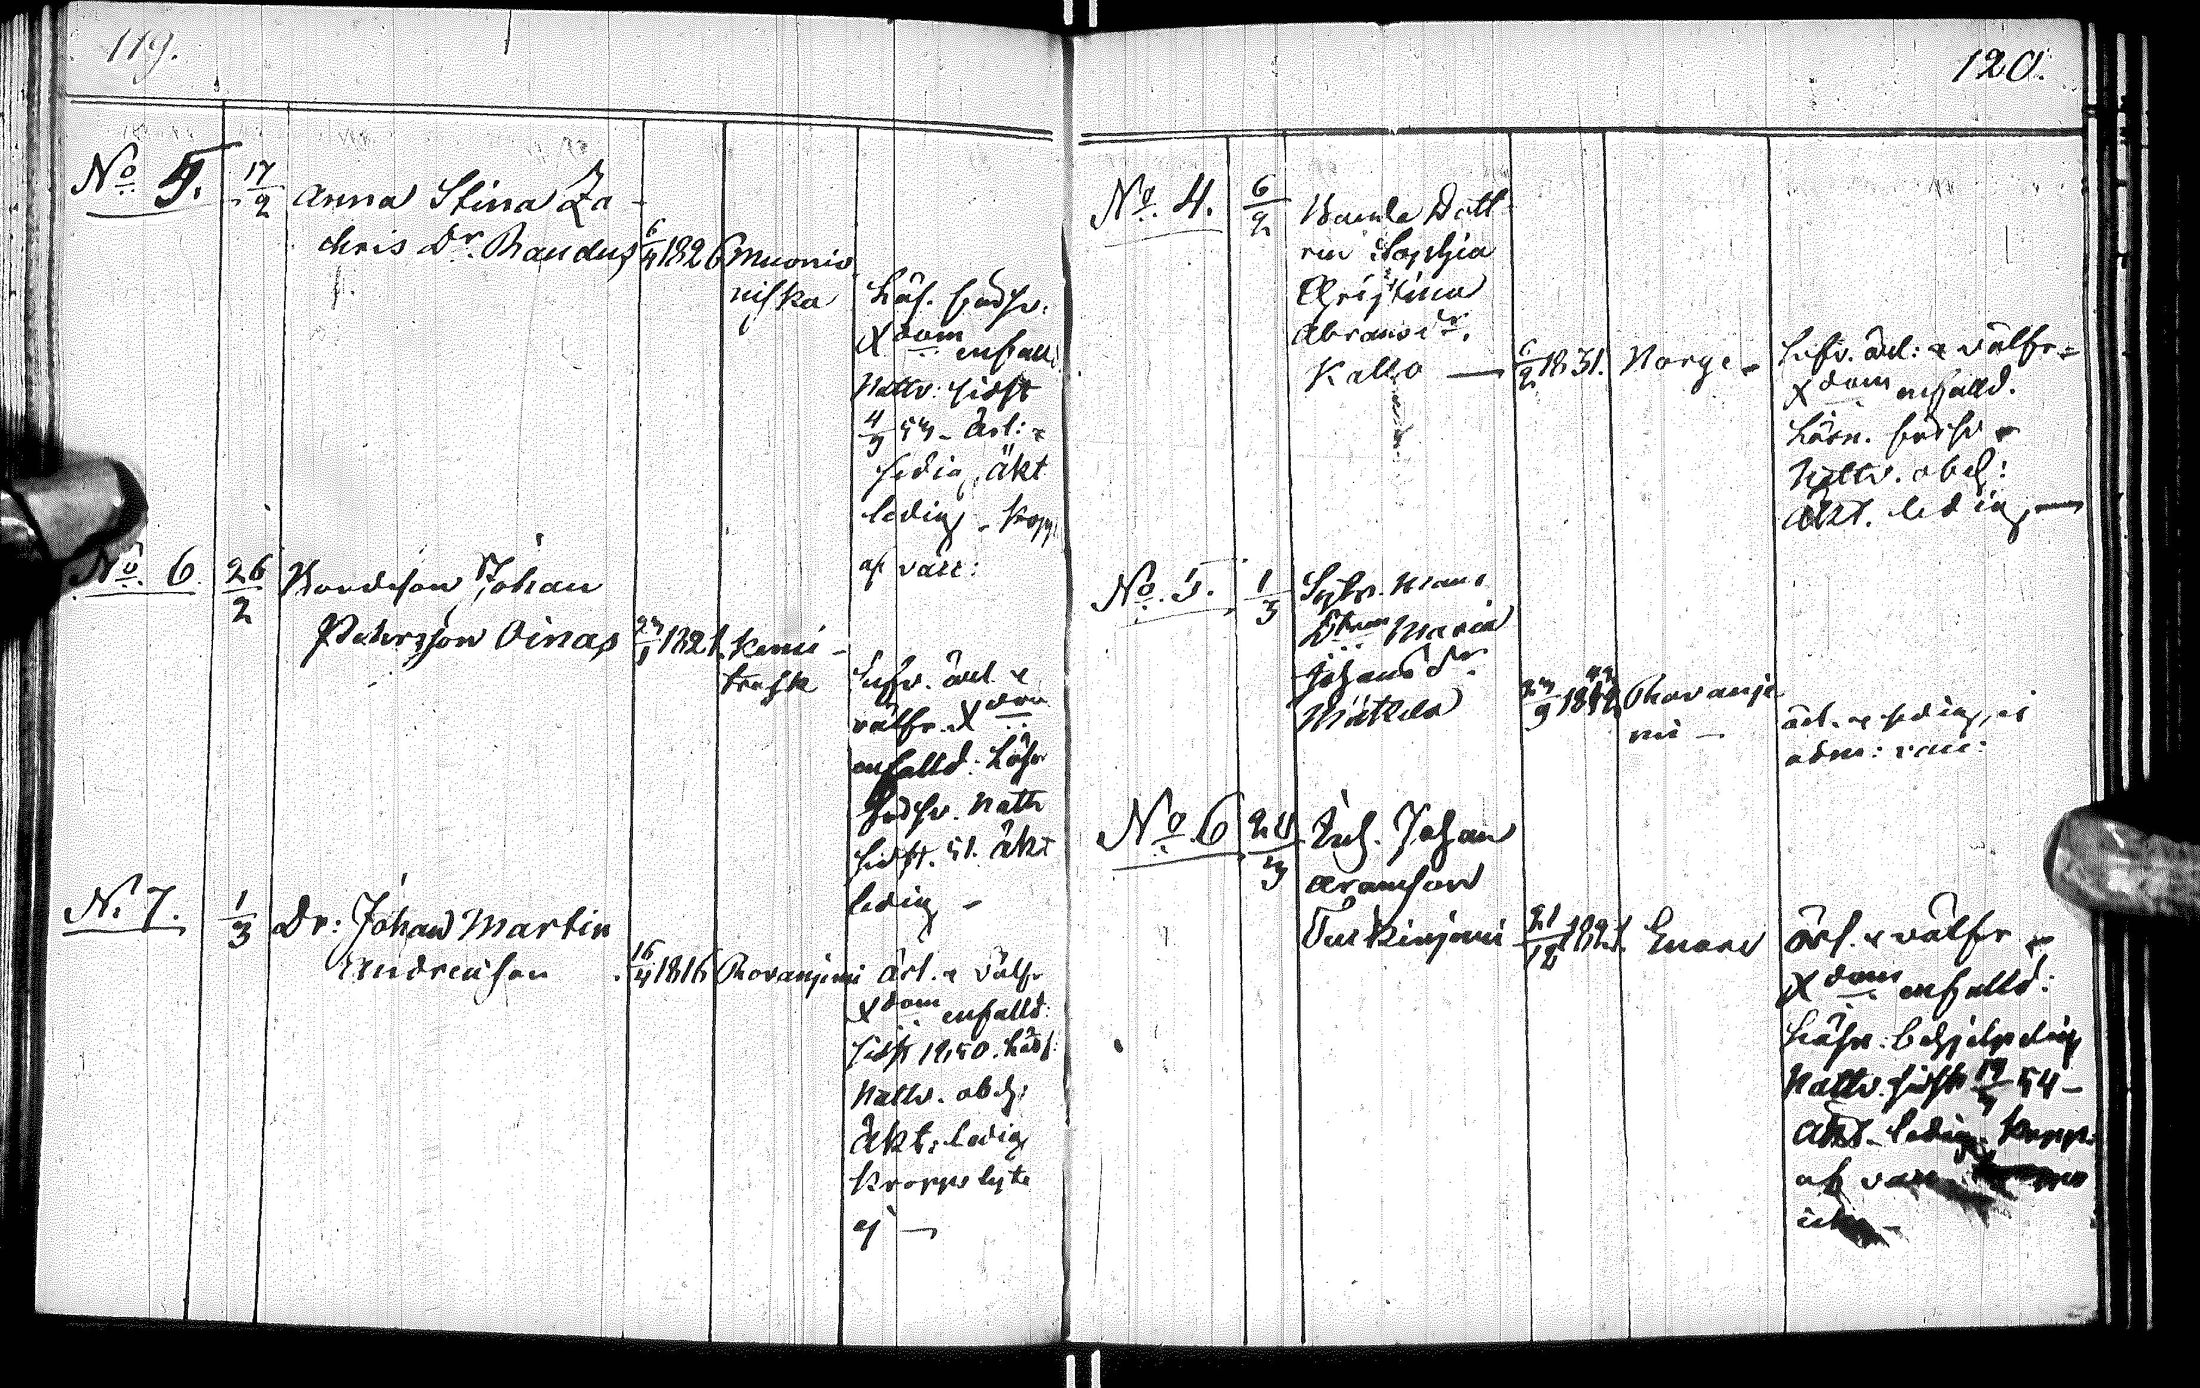 119.
No 5. 17/2 Anna Stina Za-
chris Dr. Raudus 6/4 1826 Muonio
niska
Läs. försv.
Xdom enfalld.
Nattv: sidst
4/3 53 - Ärl: &
sedig, äkt
ledig - kopp
af vacc:
No. 6. 26/2 Bondeson Johan
Petersson Oinas 1821. Kemi-
träsk
Lefv. ärl. &
välfr. Xdom
enfalld: Läsn
försv. Nattv
sidst. 51. äkt
ledig -
N. 7. 1/3 Dr: Johan Martin
Andreasson 16/4 1816 Rovaniemi
Ärl. & välfr
Xdom enfalld:
sidst 1850. Läs:
Nattv. obeh:
Äkt. ledig
Kroppslyte
ej —
120.
No. 4. 6/2 Bonde Dott-
ren Sophia
Christina
Abramsdr.
Kallo — 6/2 1831. Norge -
Lefv. ärl: & välfr-
Xdom enfalld.
Läsn. försv &
Nattv. obeh:
Äkt. ledig —
No. 5. 1/3
Dtren Maria
Johansdr.
Mättelä Rovanie-
mi —
ärl. & sedig, ej
adm: vacc:
No. 6 24/3 Inh. Johan
Aramson
21/12 1821. Enare
Ärl. & välfr &
Xdom enfalld:
Läsn: behjelpelig
Nattv. sidst 54 -
Äkt. ledig. Kopp.
af vacc.